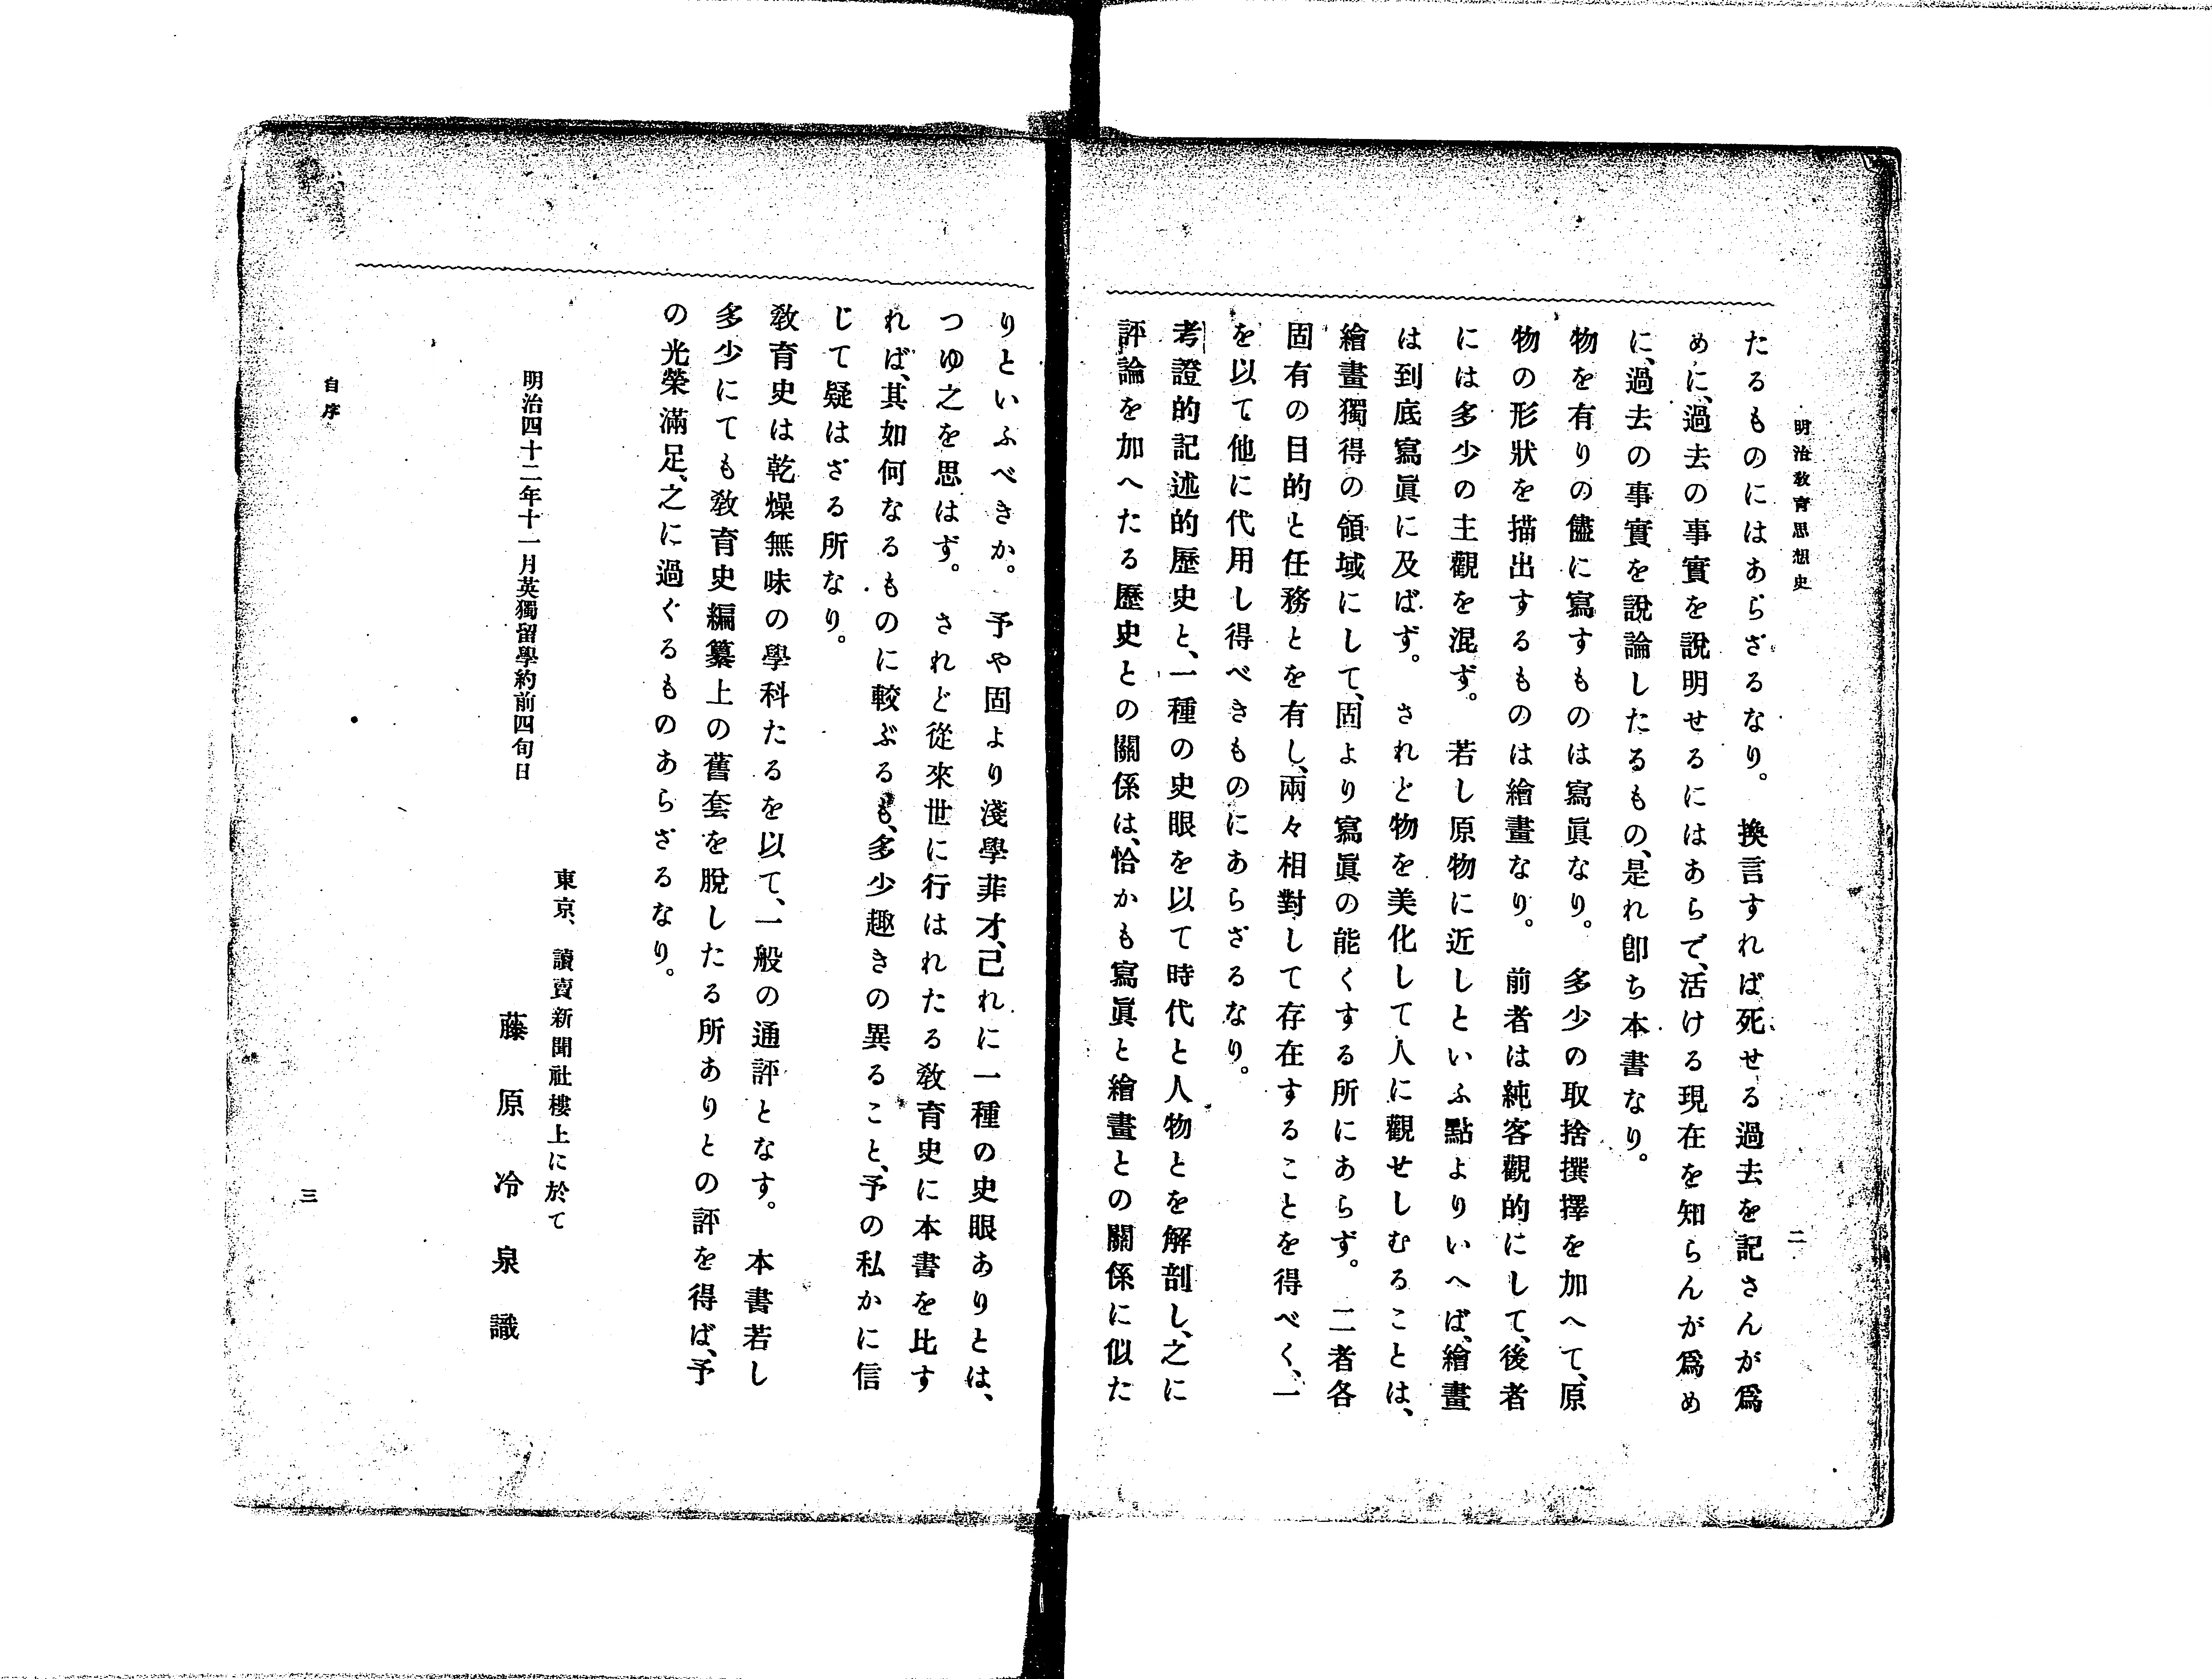 明治教育思想史
二
たるものにはあらざるなり。　換言すれば死せる過去を記さんが爲
めに、過去の事實を說明せるにはあらで、活ける現在を知らんが爲め
に、過去の事實を說論したるもの、是れ卽ち本書なり。
物を有りの儘に寫すものは寫眞なり。　多少の取捨撰擇を加へて、原
物の形狀を描出するものは繪畫なり。　前者は純客觀的にして、後者
には多少の主觀を混ず。　若し原物に近しといふ點よりいへば、繪畫
は到底寫眞に及ばず。　されど物を美化して人に觀せしむることは、
繪畫獨得の領域にして、固より寫眞の能くする所にあらず。　二者各
固有の目的と任務とを有し、兩々相對して存在することを得べく、一
を以て他に代用し得べきものにあらざるなり。
考證的記述的歷史と、一種の史眼を以て時代と人物とを解剖し、之に
評論を加へたる歷史との關係は、恰かも寫眞と繪畫との關係に似た
りといふべきか。　予や固より淺學菲才、己れに一種の史眼ありとは、
つゆ之を思はず。　されど從來世に行はれたる敎育史に本書を比す
れば、其如何なるものに較ぶるも、多少趣きの異ること、予の私かに信
じて疑はざる所なり。
敎育史は乾燥無味の學科たるを以て、一般の通評となす。　本書若し
多少にても敎育史編纂上の舊套を脫したる所ありとの評を得ば、予
の光榮滿足、之に過ぐるものあらざるなり。
東京、讀賣新聞社樓上に於て
明治四十二年十一月英獨留學約前四旬日
藤原冷泉識
自序
三